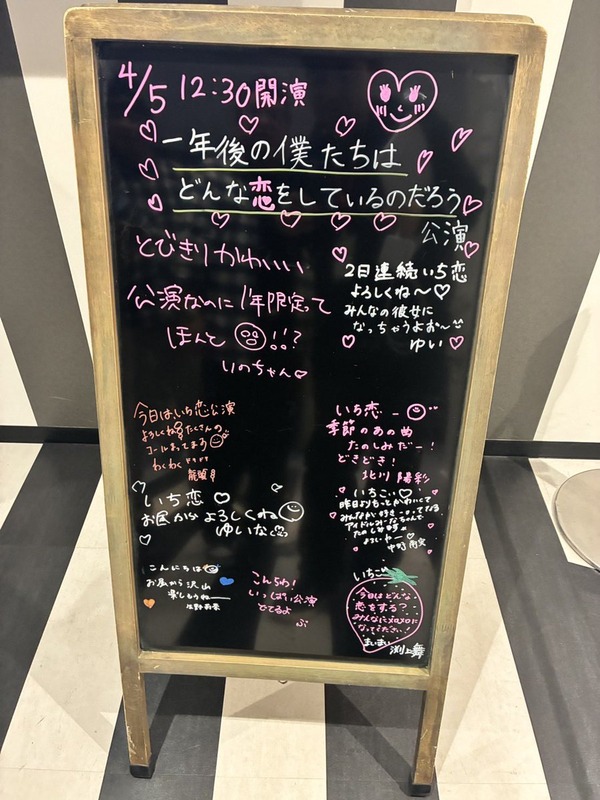 4/5 12:30開演
一年後の僕たちは
どんな恋をしているのだろう
公演
とびきりかわいい
公演なのに1年限定って
ほんと!!?
いのちゃん
2日連続いち恋
よろしくね〜♡
みんなの彼女に
なっちゃうよお〜
ゆい♡
今日はいち恋公演
よろしくね たくさんの
コールまってます
わくわく
いち恋
季節のあの曲
たのしみだー!
どきどき!
北川陽彩
いち恋♡
お昼からよろしくね
ゆいな
いちこい♡
昨日よりもっとかわいくて
みんなが好き
アイドル
こんにちは
お昼から沢山
楽しもうねー
こんちわ!
いっぱい公演
でてるよ
ぶ
いちご
今日はどんな
恋をする?
みんなにメロメロに
なってください!
まいまい
渕上舞